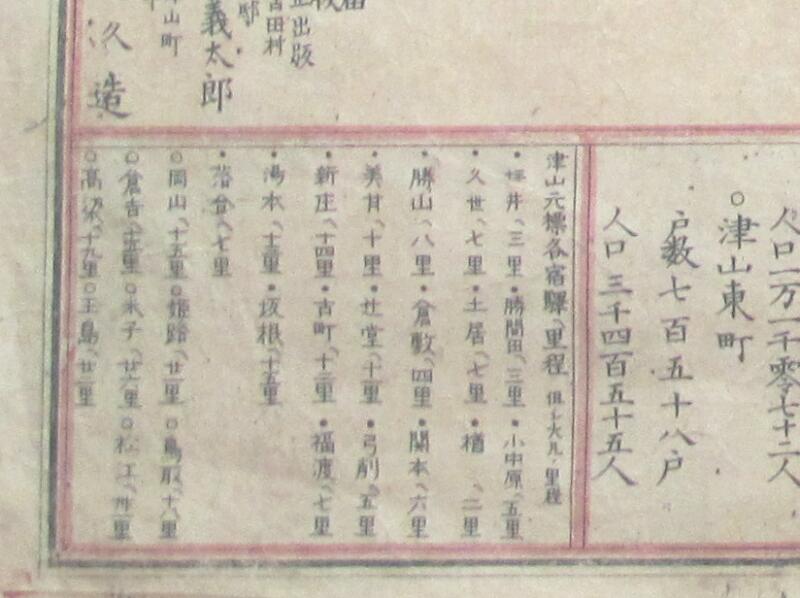 人口一万一千零七十二人
○津山東町
戸数七百五十八戸
人口三千四百五十五人
津山元標各宿驛ヘ里程 但シ大凡ノ里程
•坪井ヘ三里 •勝間田ヘ三里 •小中原ヘ五里
•久世ヘ七里 •土居ヘ七里 •楢ヘ二里
•勝山ヘ八里 •倉敷ヘ四里 •関本ヘ六里
•美甘ヘ十里 •辻堂ヘ十里 •弓削ヘ五里
•新庄ヘ十四里 •古町ヘ十二里 •福渡ヘ七里
•湯本ヘ十三里 •坂根ヘ十五里
•落合ヘ七里
○岡山ヘ十五里 ○姫路ヘ廿一里 ○鳥取ヘ十八里
○倉吉ヘ十五里 ○米子ヘ廿六里 ○松江ヘ卅一里
○高梁ヘ十九里 ○玉島ヘ廿一里
正出版
吉田村
邸
義太郎
山町
久造